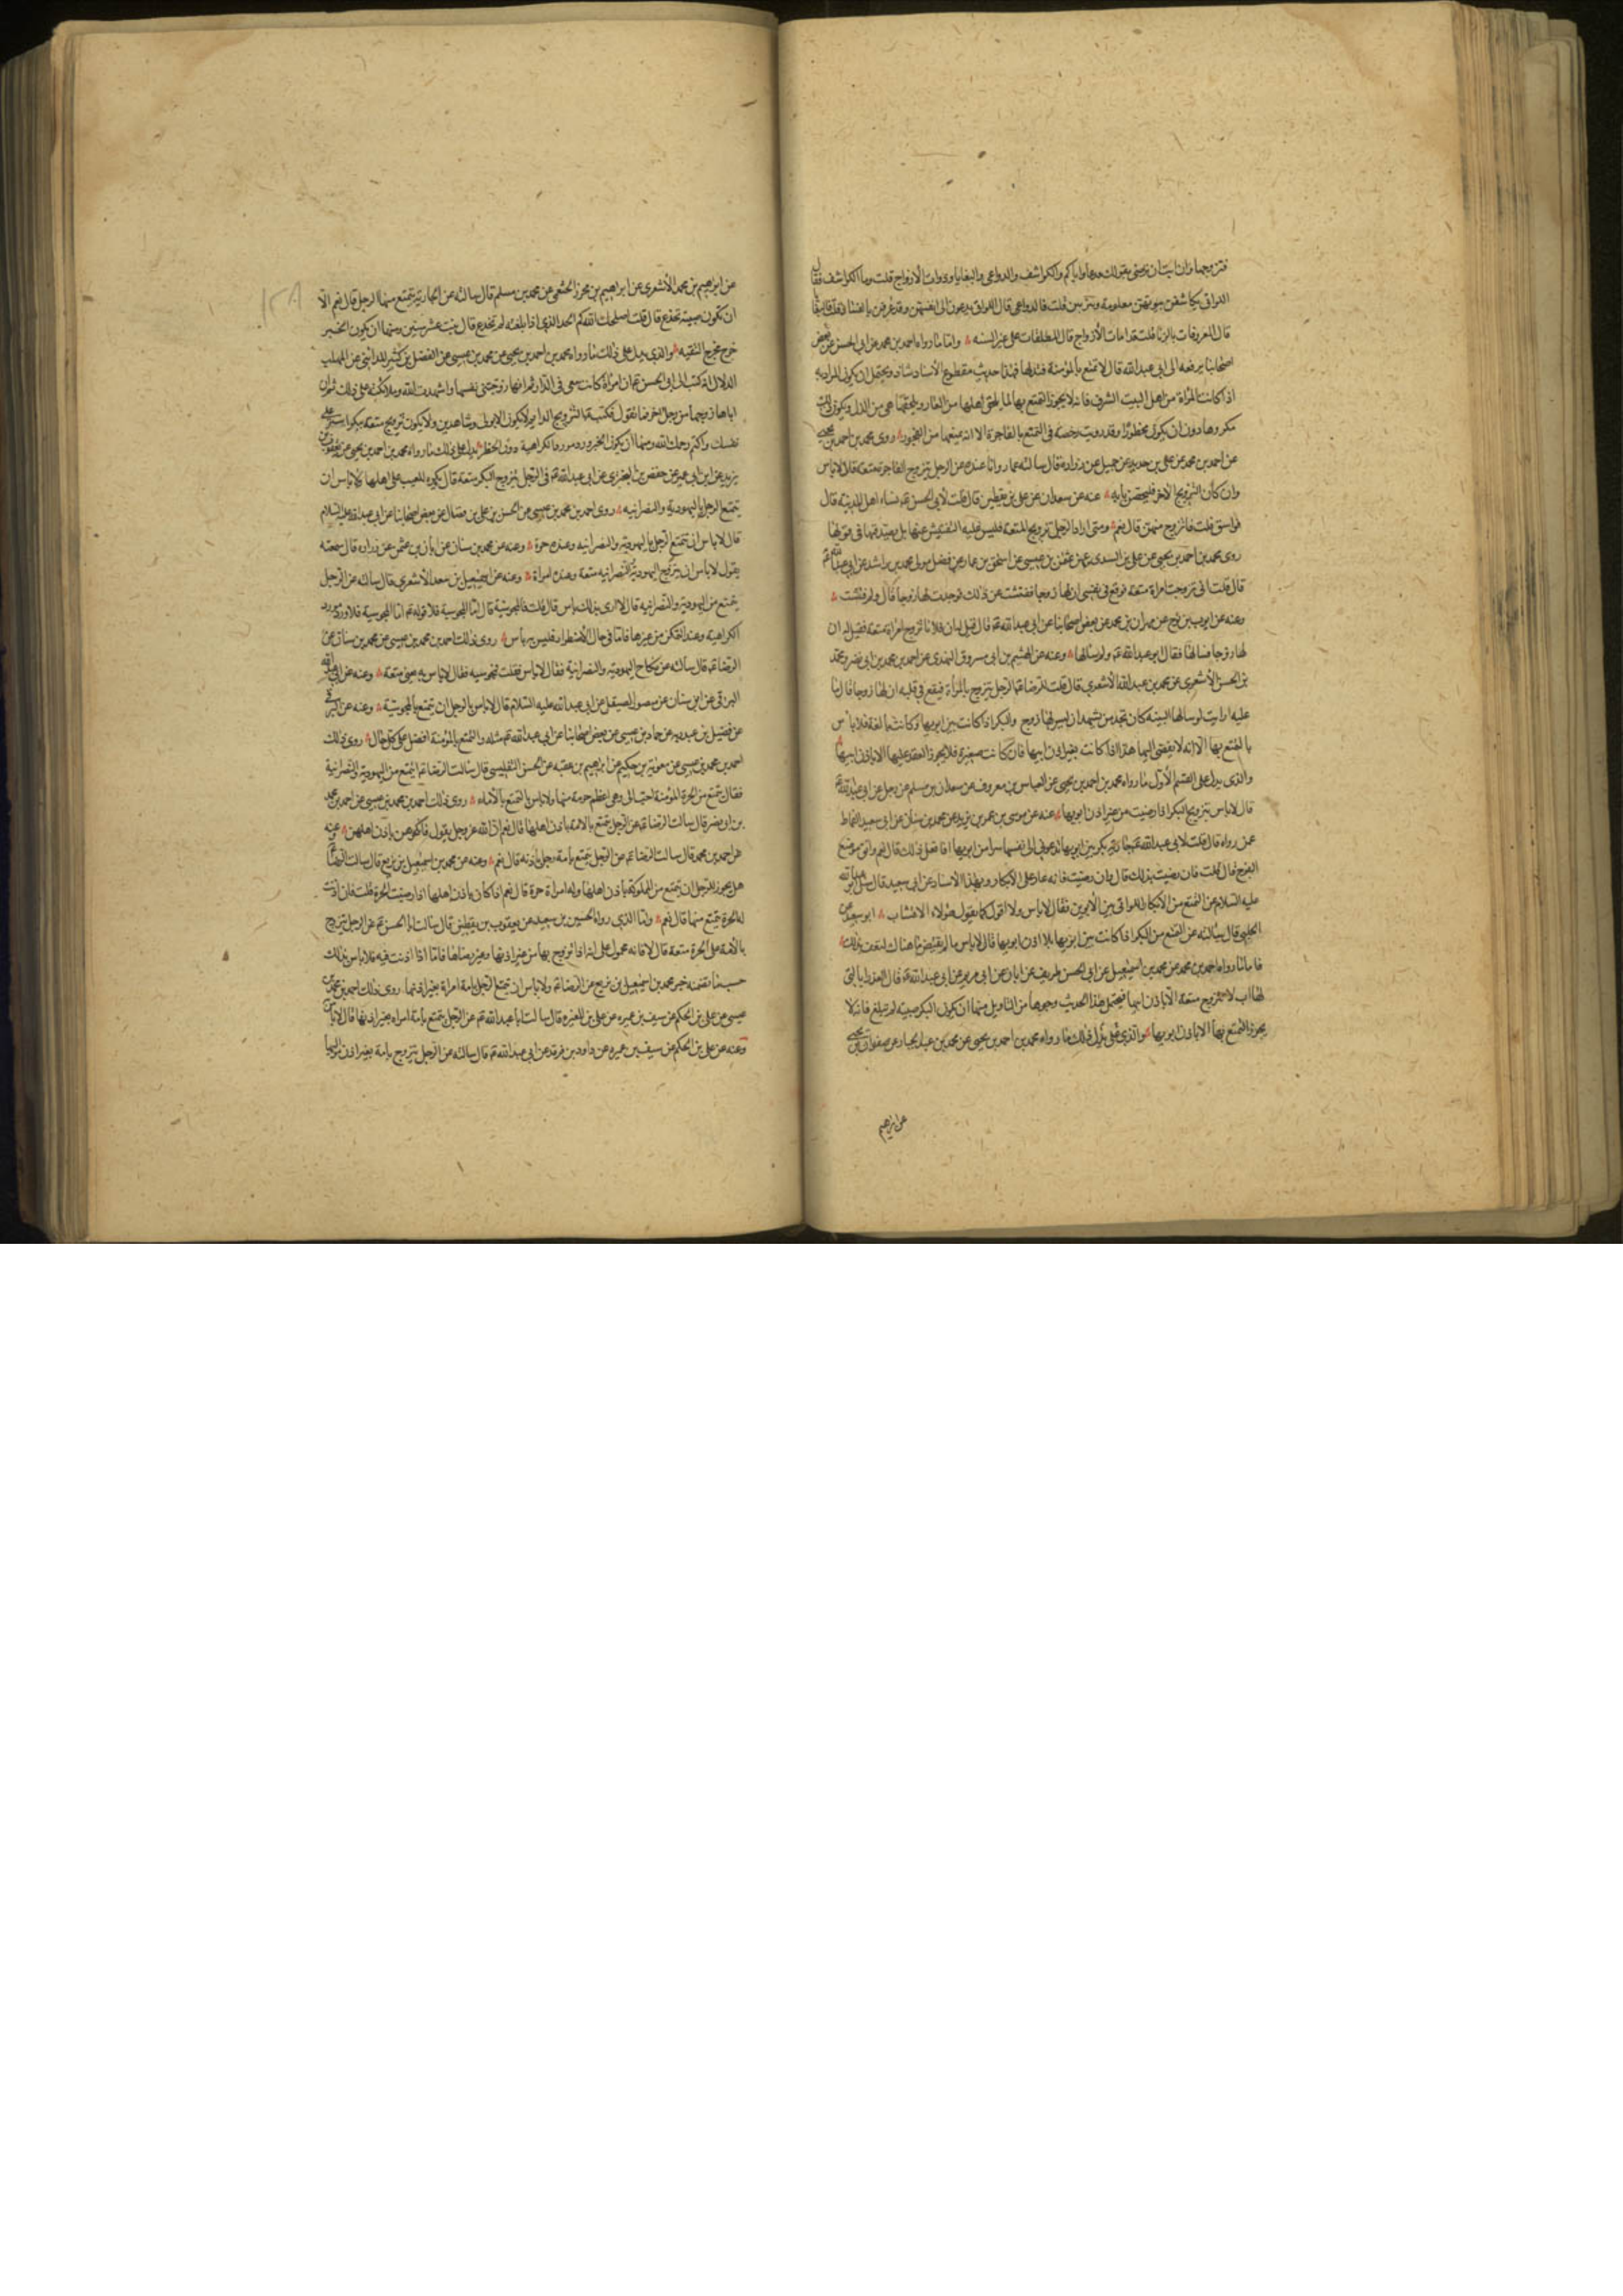 فتزوجها وان ابت ان ترضى بقولك فدعها واياكم والكواشف والدواعي والبغايا وذوات الازواج قلت وما الكواشف فقال
اللواتي يكاشفن وبيوتهن معلومة ويزنين قلت فالدواعي قال اللواتي يدعون الى انفسهن وقد عرفن بالفساد قلت فالبغايا
قال المعروفات بالزنا قلت فذوات الازواج قال المطلقات على غير السنه واما ما رواه احمد بن محمد عن ابي الحسن عن بعض
اصحابنا يرفعه الى ابي عبد الله قال لا تمتع بالمؤمنة فتذلها فهذا حديث مقطوع الاسناد شاذ ويحتمل ان يكون المراد به
اذا كانت المرأة من اهل البيت الشرف فانه لا يجوز التمتع بها لما يلحق اهلها من العار ويلحقها هي من الذل ويكون ذلك
مكروها دون ان يكون محظورا وقد رويت رخصة في التمتع بالفاجرة الا انه يمنعها من الفجور روى محمد بن احمد بن يحيى
عن احمد بن محمد عن علي بن حديد عن جميل عن زرارة قال سأله عمار وانا عنده عن الرجل يتزوج الفاجرة متعة قال لا باس
وان كان التزويج الاخر فليحصن بابه عنه عن سعدان عن علي بن يقطين قال قلت لابي الحسن ع نساء اهل المدينة قال
فواسق قلت فاتزوج منهن قال نعم ومتى اراد الرجل تزويج المتعة فليس عليه التفتيش عنها بل يصدقها في قولها
روى محمد بن احمد بن يحيى عن علي بن السندي عن عثمن بن عيسى عن اسحق بن عمار عن فضل مولى محمد بن راشد عن ابي عبد الله ع
قال قلت اني تزوجت امراة متعة فوقع في نفسي ان لها زوجا ففتشت عن ذلك فوجدت لها زوجا قال ولم فتشت
وعنه عن ايوب بن نوح عن مهران بن محمد عن بعض اصحابنا عن ابي عبد الله ع قال قيل له ان فلانا تزوج امرأة متعة فقيل له ان
لها زوجا فسالها فقال ابو عبد الله ع ولم سالها وعنه عن الهيثم بن ابي مسروق النهدي عن احمد بن محمد بن ابي نصر ومحمد
بن الحسن الاشعري عن محمد بن عبد الله الاشعري قال قلت للرضا ع الرجل يتزوج بالمرأة فيقع في قلبه ان لها زوجا قال ما
عليه ارايت لو سالها البينه كان تجد من يشهد ان ليس لها زوج والبكر اذا كانت بين ابويها وكانت بالغة فلا باس
بالتمتع بها الا انه لا يفضي اليها هذا اذا كانت بغير اذن ابيها فان كانت صغيرة فلا يجوز العقد عليها الا باذن ابيها
والذي يدل على القسم الاول ما رواه محمد بن احمد بن يحيى عن العباس بن معروف عن سعدان بن مسلم عن رجل عن ابي عبد الله ع
قال لا باس بتزويج البكر اذا رضيت من غير اذن ابويها عنه عن موسى بن عمر بن يزيد عن محمد بن سنان عن ابي سعيد القماط
عمن رواه قال قلت لابي عبد الله ع جارية بكر بين ابويها تدعوني الى نفسها سرا من ابويها افافعل ذلك قال نعم واتق موضع
الفرج قال قلت فان رضيت بذلك قال وان رضيت فانه عار على الابكار وبهذا الاسناد عن ابي سعيد قال سئل ابو عبد الله
عليه السلام عن التمتع من الابكار اللواتي بين الابوين فقال لا باس ولا اقول كما يقول هؤلاء الاقشاب ابو سعيد عن
الحلبي قال سألته عن التمتع من البكر اذا كانت بين ابويها بلا اذن ابويها قال لا باس ما لم يفتض ما هناك لتعف بذلك
فاما ما رواه احمد بن محمد عن محمد بن اسمعيل عن ابي الحسن ظريف عن ابان عن ابي مريم عن ابي عبد الله ع قال العذراء التي
لها اب لا تتزوج متعة الا باذن ابيها فيحتمل هذا الحديث وجوها من التاويل منها ان يكون البكر صبية لم تبلغ فانه لا
يجوز التمتع بها الا باذن ابويها والذي يدل على ذلك ما رواه محمد بن احمد بن يحيى عن محمد بن عبد الجبار عن صفوان بن يحيى
عن ابرهيم
١٢٨
عن ابرهيم بن محمد الاشعري عن ابراهيم بن محرز الخثعمي عن محمد بن مسلم قال سالته عن الجارية يتمتع منها الرجل قال نعم الا
ان تكون صبية تخدع قال قلت اصلحك الله كم الحد الذي اذا بلغته لم تخدع قال بنت عشر سنين ومنها ان يكون الخبر
خرج مخرج التقيه والذي يدل على ذلك ما رواه محمد بن احمد بن يحيى عن محمد بن عيسى عن الفضل بن كثير المدائني عن المهلب
الدلال انه كتب الى ابي الحسن ع ان امرأة كانت معي في الدار ثم انها زوجتني نفسها واشهدت الله وملائكته على ذلك ثم ان
اباها زوجها من رجل اخر فما تقول فكتب ع التزويج الدايم لا يكون الا بولي وشاهدين ولا يكون تزويج متعة ببكر استر على
نفسك واكتم رحمك الله ومنها ان يكون الخبر ورد مورد الكراهية دون الحظر يدل على ذلك ما رواه محمد بن احمد بن يحيى عن يعقوب بن
يزيد عن ابن ابي عمير عن حفص بن البختري عن ابي عبد الله ع في الرجل يتزوج البكر متعة قال يكره للعيب على اهلها ولا باس ان
يتمتع الرجل باليهودية والنصرانيه روى احمد بن محمد بن عيسى عن الحسن بن علي بن فضال عن بعض اصحابنا عن ابي عبد الله عليه السلام
قال لا باس ان يتمتع الرجل باليهودية والنصرانيه وعنده حرة وعنه عن محمد بن سنان عن ابان بن عثمن عن زراره قال سمعته
يقول لا بأس ان يتزوج اليهودية والنصرانيه متعة وعنده امراة وعنه عن اسمعيل بن سعد الاشعري قال سالته عن الرجل
يتمتع من اليهودية والنصرانيه قال لا ارى بذلك باس قال قلت فالمجوسية قال اما المجوسية فلا قوله ع اما المجوسية فلا ورد مورد
الكراهية وعند التمكن من غيرها فاما في حال الاضطرار فليس به بأس روى ذلك احمد بن محمد بن عيسى عن محمد بن سنان عن
الرضا ع قال سالته عن نكاح اليهودية والنصرانية فقال لا باس فقلت فمجوسيه فقال لا باس به يعني متعة وعنه عن ابي عبد الله
البرقي عن ابن سنان عن منصور الصيقل عن ابي عبد الله عليه السلام قال لا باس بالرجل ان يتمتع بالمجوسية وعنه عن البرقي
عن فضيل بن عبد ربه عن حماد بن عيسى عن بعض اصحابنا عن ابي عبد الله ع مثله والتمتع بالمؤمنة افضل على كل حال روى ذلك
احمد بن محمد بن عيسى عن معوية بن حكيم عن ابرهيم بن عقبه عن الحسن التفليسي قال سالت الرضا ع ايتمتع من اليهودية والنصرانية
فقال يتمتع من الحرة المؤمنة احب الى وهي اعظم حرمة منها ولا باس بالتمتع بالاماء روى ذلك احمد بن محمد بن عيسى عن احمد بن محمد
بن ابي نصر قال سالت الرضا ع عن الرجل يتمتع بالامة باذن اهلها قال نعم ان الله عز وجل يقول فانكحوهن باذن اهلهن وعنه
عن احمد بن محمد قال سالت الرضا ع عن الرجل يتمتع بأمة رجل باذنه قال نعم وعنه عن محمد بن اسمعيل بن بزيع قال سالت الرضا ع
هل يجوز للرجل ان يتمتع من المملوكة باذن اهلها وله امراة حرة قال نعم اذا كان باذن اهلها اذا رضيت الحرة قلت فان اذنت
له الحرة يتمتع منها قال نعم واما الذي رواه الحسين بن سعيد عن يعقوب بن يقطين قال سالت ابا الحسن ع عن الرجل يتزوج
بالامة على الحرة متعة قال لا فانه محمول على انه اذا تزوج بها من غير اذنها وغير رضاها فاما اذا اذنت فيه فلا باس بذلك
حسب ما تضمنه خبر محمد بن اسمعيل بن بزيع عن الرضا ع ولا باس ان يتمتع الرجل بامة امراة بغير اذنها روى ذلك احمد بن محمد بن
عيسى عن علي بن الحكم عن سيف بن عميره عن علي بن المغيره قال سالت ابا عبد الله ع عن الرجل يتمتع بامة امراه بغير اذنها قال لا باس
وعنه عن علي بن الحكم عن سيف بن عميره عن داود بن فرقد عن ابي عبد الله ع قال سالته عن الرجل يتزوج بامة بغير اذن مواليها